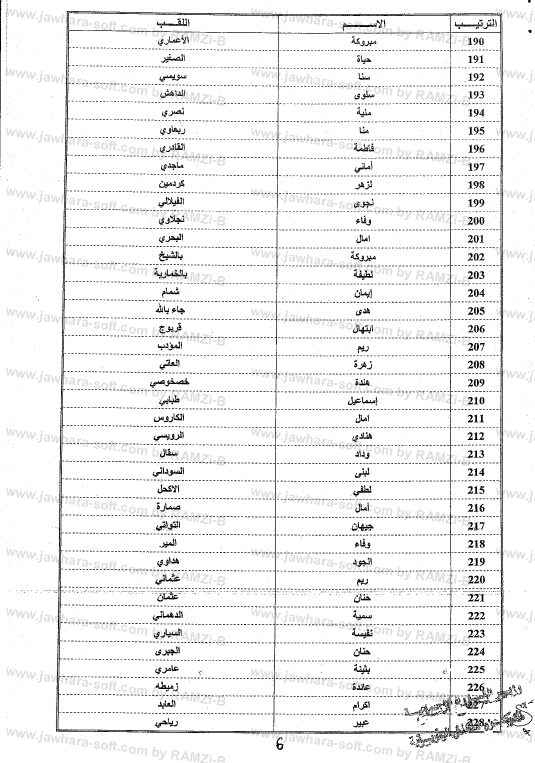 الترتيب الاسم اللقب
190 مبروكة الأعماري
191 حياة الصغير
192 سنا سويسي
193 سلوى الداهش
194 منية نصري
195 منا ربعاوي
196 فاطمة القادري
197 أماني ماجدي
198 لزهر كردمين
199 نجوى الفيلالي
200 وفاء نجلاوي
201 امال البحري
202 مبروكة بالشيخ
203 لطيفة بالخمارية
204 إيمان شمام
205 هدى جاء بالله
206 ابتهال قريوج
207 ريم المؤدب
208 زهرة العاتي
209 هندة خصخوصي
210 إسماعيل طبابي
211 امال الكاروس
212 هنادي الرويسي
213 وداد سفال
214 لبنى السوداني
215 لطفي الاكحل
216 أمال صمارة
217 جيهان التواتي
218 وفاء المير
219 الجود هداوي
220 ريم عثماني
221 حنان عثمان
222 سمية الدهماني
223 نفيسة السياري
224 حنان الجبرى
225 بثينة عامري
226 عائدة زميطه
227 اكرام العابد
228 عبير رياحي
6
www.jawhara-soft.com by RAMZI-B